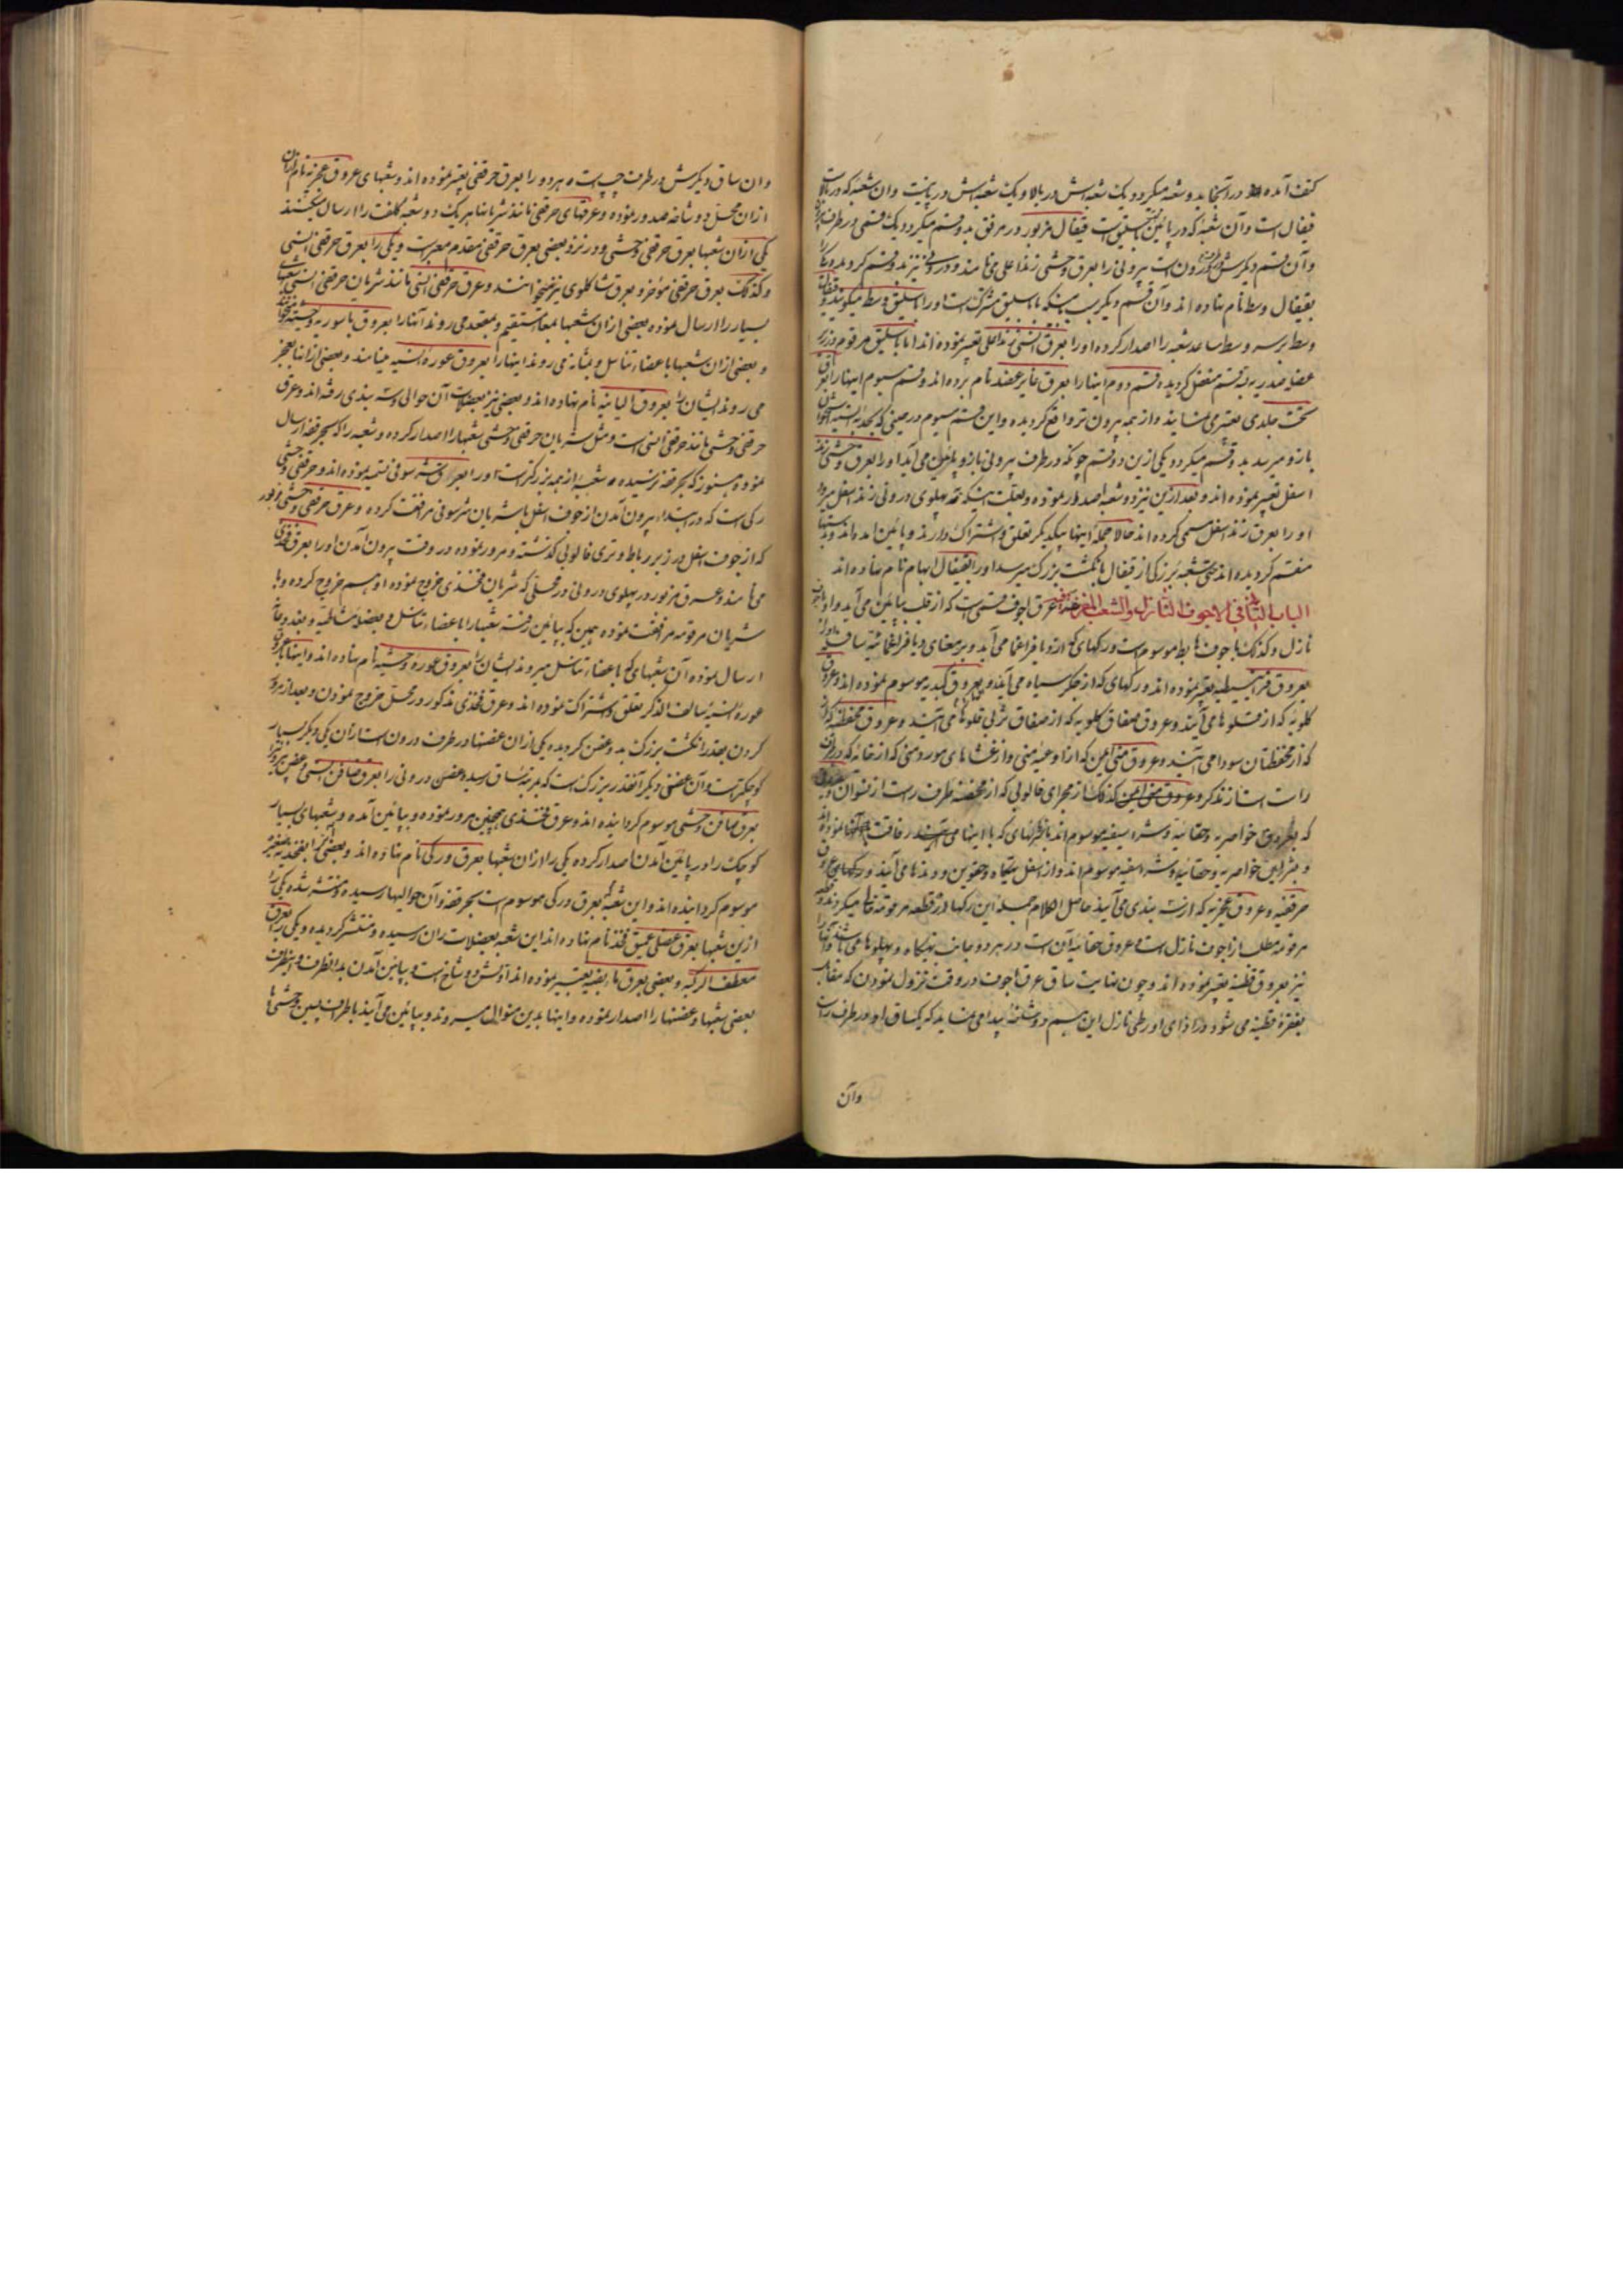 کتف آمده در آنجا بدو شعبه میکردد یک شعبه‌اش در بالا و یک شعبه‌اش در پائینست و آن شعبه که در بالاست
قیفال است و آن شعبه که در پائین است باسلیق است قیفال مزبور در مرفق بدو قسم میکردد یک قسمی در طرف
و آن قسم دیکرش در درون است بیرونی را بعرق وحشی زند اعلی می نامند و درونی نیز بدو قسم کردیده یکرا
بقیفال وسط نام نهاده اند و آن قسم دیکر بسبب اینکه با باسلیق مشترکست او را باسلیق وسط میکویند و قیفال
وسط برسه وسط ساعد شعبه را اصدار کرده او را بعرق انسی زند اعلی تعبیر نموده اند اما باسلیق مرقوم در زیر
عضل صدریه بسه قسم منفصل کردیده قسم دوم اینها را بعرق غایر عضد نام برده اند و قسم سیوم اینها را بعرق
تحت جلدی تعبیر می نمایند و از همه بیرون تر واقع کردیده و این قسم سیوم در حینی که
بازو میرسد بدو قسم میکردد یکی ازین دو قسم چونکه در طرف بیرونی بازو پائین می آید او را بعرق وحشی زند
اسفل تعبیر نموده اند و بعد ازین نیز دو شعبه اصدار نموده و بعلت اینکه بپهلوی درونی زند اسفل میرود
او را بعرق زند اسفل مسمی کرده اند حالا جمله اینها بیکدیکر تعلق و اشتراک دارند و پائین آمده اند و بدستها
منقسم کردیده اند حتی شعبه بزرکی از قیفال بانکشت بزرک میرسد او را بقیفال ابهام نام نهاده اند
الباب الثانی فی الاجوف النازل والشعب عرق اجوف قسمی است که از قلب بپائین می آید و او را باجوف
نازل و کذلک باجوف هابط موسوم است و رکهای که ازو بافراغما می آید
بعروق تعبیر نموده اند و رکهای که از جکر سیاه می آیند و بعروق کبدیه موسوم نموده اند و عروق
کلویه که از قلوه‌ها می آیند و عروق صفاق کلویه که از صفاق ثربی قلوه‌ها می آیند و عروق
که از محفظتان سودا می آیند و عروق منی ایمن که از اوعیه منی و از غشاهای موردمنی که از خانه که در طرف
راست است از مذکر و عروق منی ایمن کذلک از مجرای فالوپی که از محفظه طرف راست از نسوان
که بعروق خواصریه و حقانیه و شراسیفیه موسوم اند
و بشرایین خواصریه و حقانیه و شراسفیه موسوم اند و از اسفل تهیکاه و حقوین و دندها می آیند و رکهای عروق
حرقفیه و عروق عجزیه که از استه بندی می آیند حاصل الکلام جمله این رکها در قطعه مرقومه
مرقومه مطلب از اجوف نازل است و عروق حقانیه آن است در هر دو جانب تهیکاه و پهلوها می باشند و آنها را
نیز بعروق قطنیه تعبیر نموده اند و چون نهایت ساق عرق اجوف در وقت نزول نمودن که مقابل
بفقره قطنیه می شود در ازای اورطی نازل این هم دو شاخه پیدا می نماید که یکساق او در طرف راست
وان
وان ساق دیکرش در طرف چپ است هر دو را بعرق حرقفی تعبیر نموده اند و شعبهای عروق عجزیه نام ازان
ازان محل دو شاخه صدور نموده و عرقهای حرقفی مانند شریانها هر یک دو شعبه کلفت را ارسال میکنند
یکی ازان شعبها بعرق حرقفی وحشی و در نزد بعضی بعرق حرقفی مقدم معبر است و یکی را بعرق حرقفی انسی
و کذلک بعرق حرقفی مؤخر و بعرق تشاکلوی نیز میخوانند و عرق حرقفی انسی مانند شریان حرقفی انسی شعبهای
بسیار را ارسال نموده بعضی ازان شعبها بمعاء مستقیم و بمقعد می روند آنها را بعروق باسوریه وحشیه میخوانند
و بعضی ازان شعبها باعضاء تناسل و بمثانه می روند اینها را بعروق عوره انسیه مینامند و بعضی ازانها بعجز
می روند ایشان را بعروق الیانیه نام نهاده اند و بعضی نیز بعضلات آن حوالی استه بندی رفته اند و عرق
حرقفی وحشی مانند حرقفی انسی است و مثل شریان حرقفی وحشی شعبها را اصدار کرده و شعبه را که بحرقفه ارسال
نموده و هنوز که بحرقفه نرسیده شعبه از همه بزرکتر است او را بعرق شرسوفی تسمیه نموده اند و حرقفی وحشی
رکی است که در ابتداء بیرون آمدن از جوف اسفل با شریان شرسوفی مرافقت کرده و عرق حرقفی وحشی مزبور
که از جوف اسفل در زیر رباط وتری فالوپی کذشته و مرور نموده در وقت بیرون آمدن او را بعرق فخذی
می نامند و عرق مزبور در پهلوی درونی و در محلی که شریان فخذی خروج نموده او هم خروج کرده و با
شریان مرقومه مرافقت نموده همین که بپائین رفته شعبها را باعضاء تناسل و بعضله مشاطیه و بغدد عانه
ارسال نموده آن شعبهای که باعضاء تناسل میروند ایشان را بعروق عوره وحشیه نام نهاده اند و اینها بعروق
عوره انسیه سالف الذکر تعلق و اشتراک نموده اند و عرق فخذی مذکور در محل خروج نمودن و بعد از مرور
کردن بقدر انکشت بزرک بدو غصن کردیده یکی ازان غصنها در طرف درون است ازان یکی دیکر بسیار
کوچکتر است و آن غصن دیکر آنقدر بزرک است که بمرتبه ساق رسیده و غصن درونی را بعرق صافن انسی و غصن بیرون را
بعرق صافن وحشی موسوم کردانیده اند و عرق فخذی همچنین مرور نموده و بپائین آمده و شعبهای بسیار
کوچک را در پائین آمدن اصدار کرده یکی را ازان شعبها بعرق ورکی نام نهاده اند و بعضی
موسوم کردانیده اند و این شعبه که بعرق ورکی موسوم است بحرقفه و آن حوالیها رسیده و منتشر شده یکی را
ازین شعبها بعرق عضلی عمیق فخذ نام نهاده اند این شعبه بعضلات ران رسیده و منتشر کردیده و یکی را بعرق
معطف الرکبه و بعضی بعرق مأبضیه تعبیر نموده اند او شش دو شاخ است و بپائین آمدن بدانطرف و اینطرف
بعضی شعبها و غصنها را اصدار نموده و اینها بدین منوالی میروند و بپائین می آیند باطراف پسین وحشی